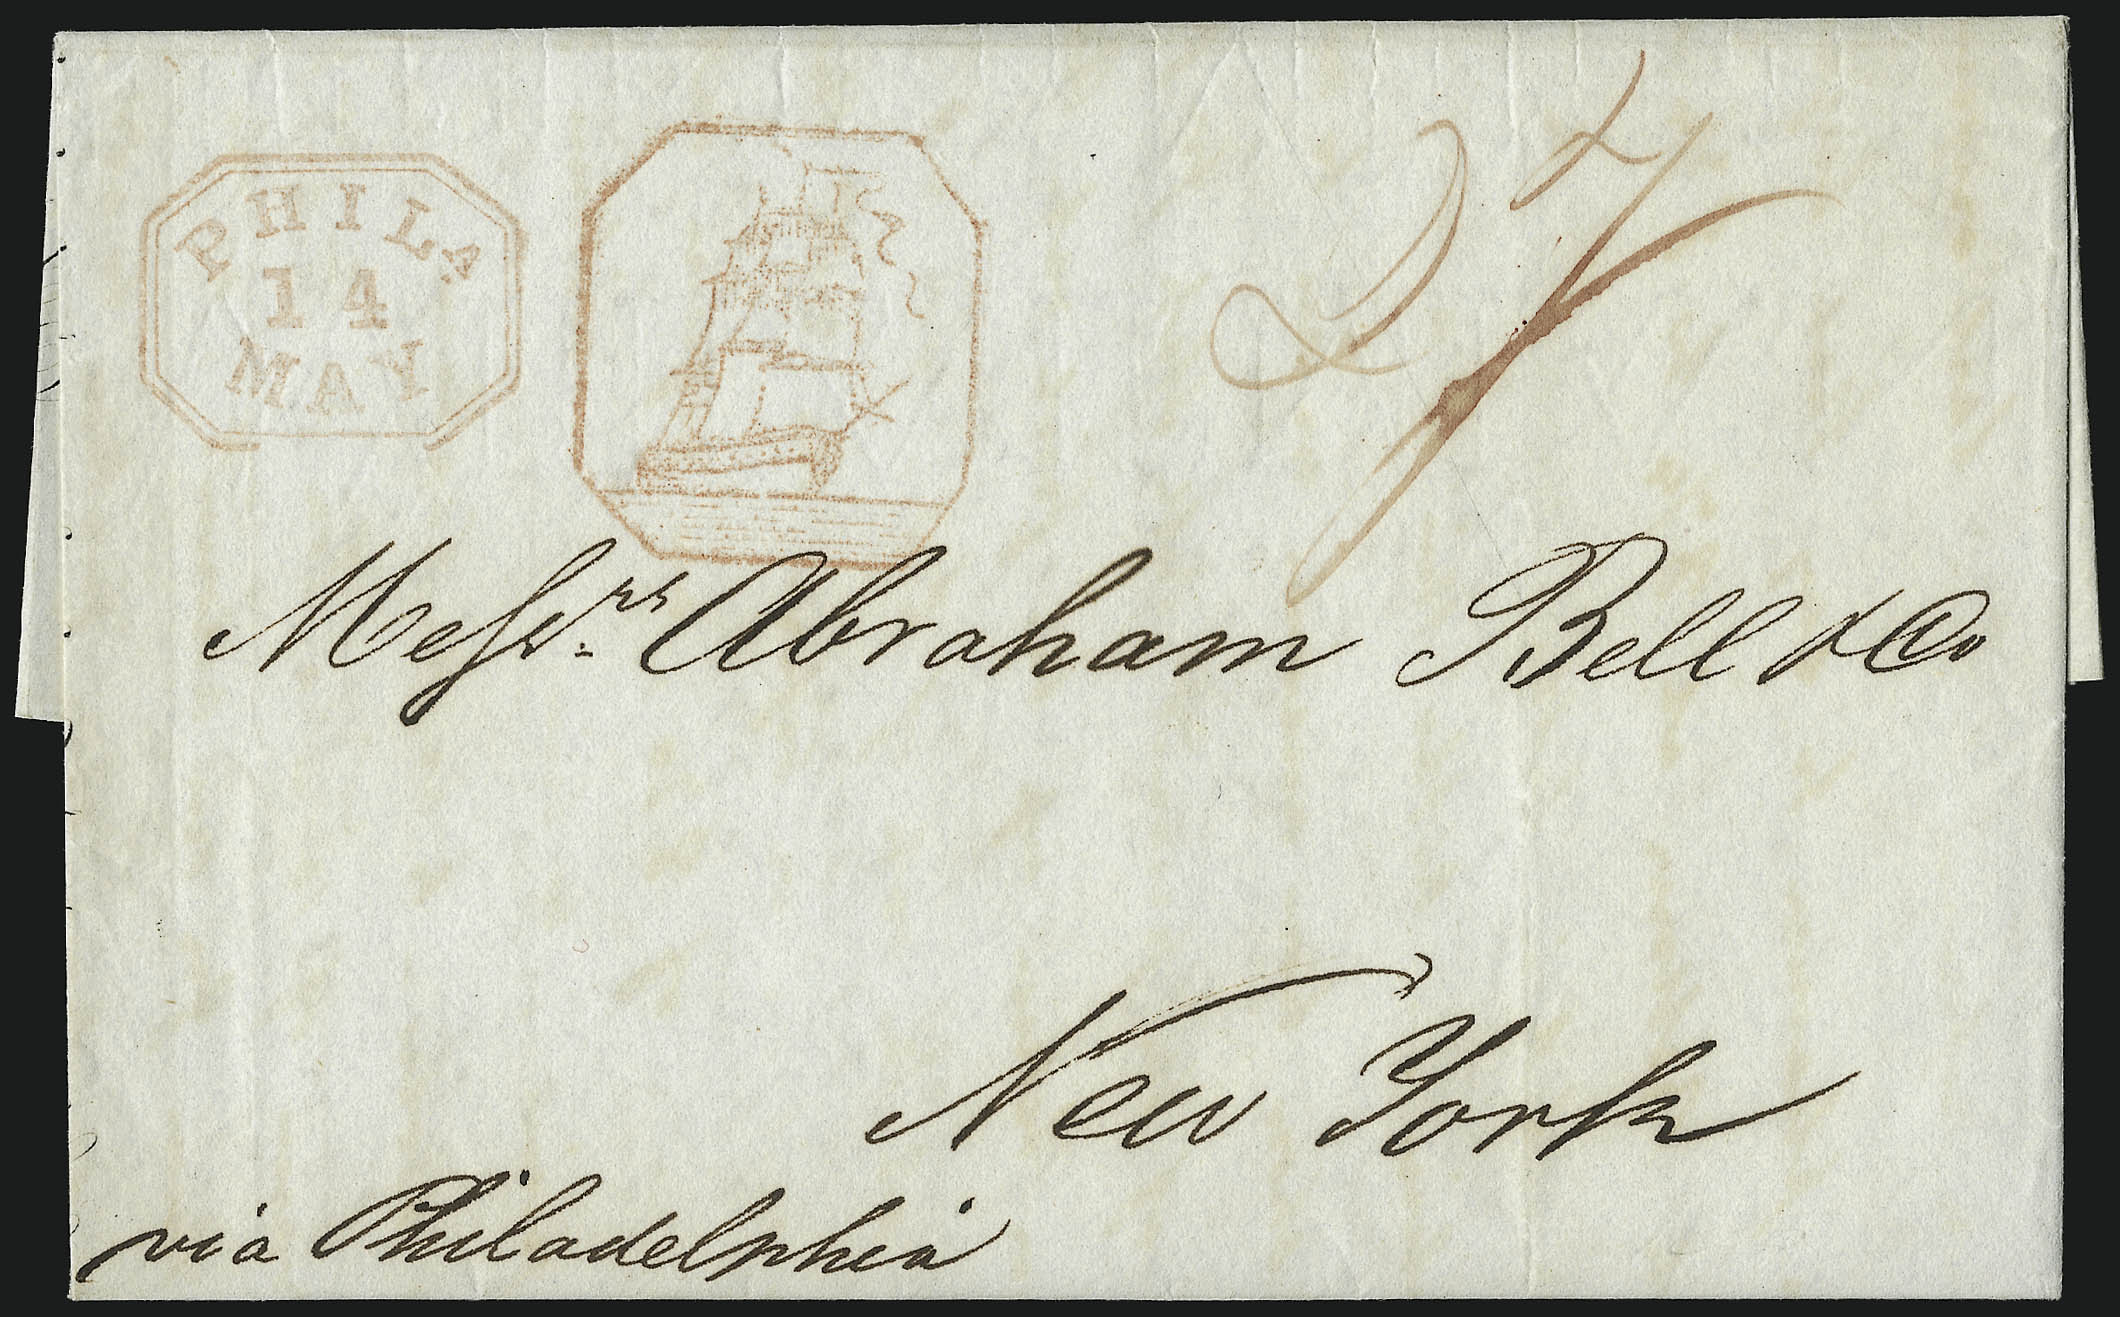 PHILA
14
MAY
27
Messrs. Abraham Bell & Co
New York
via Philadelphia